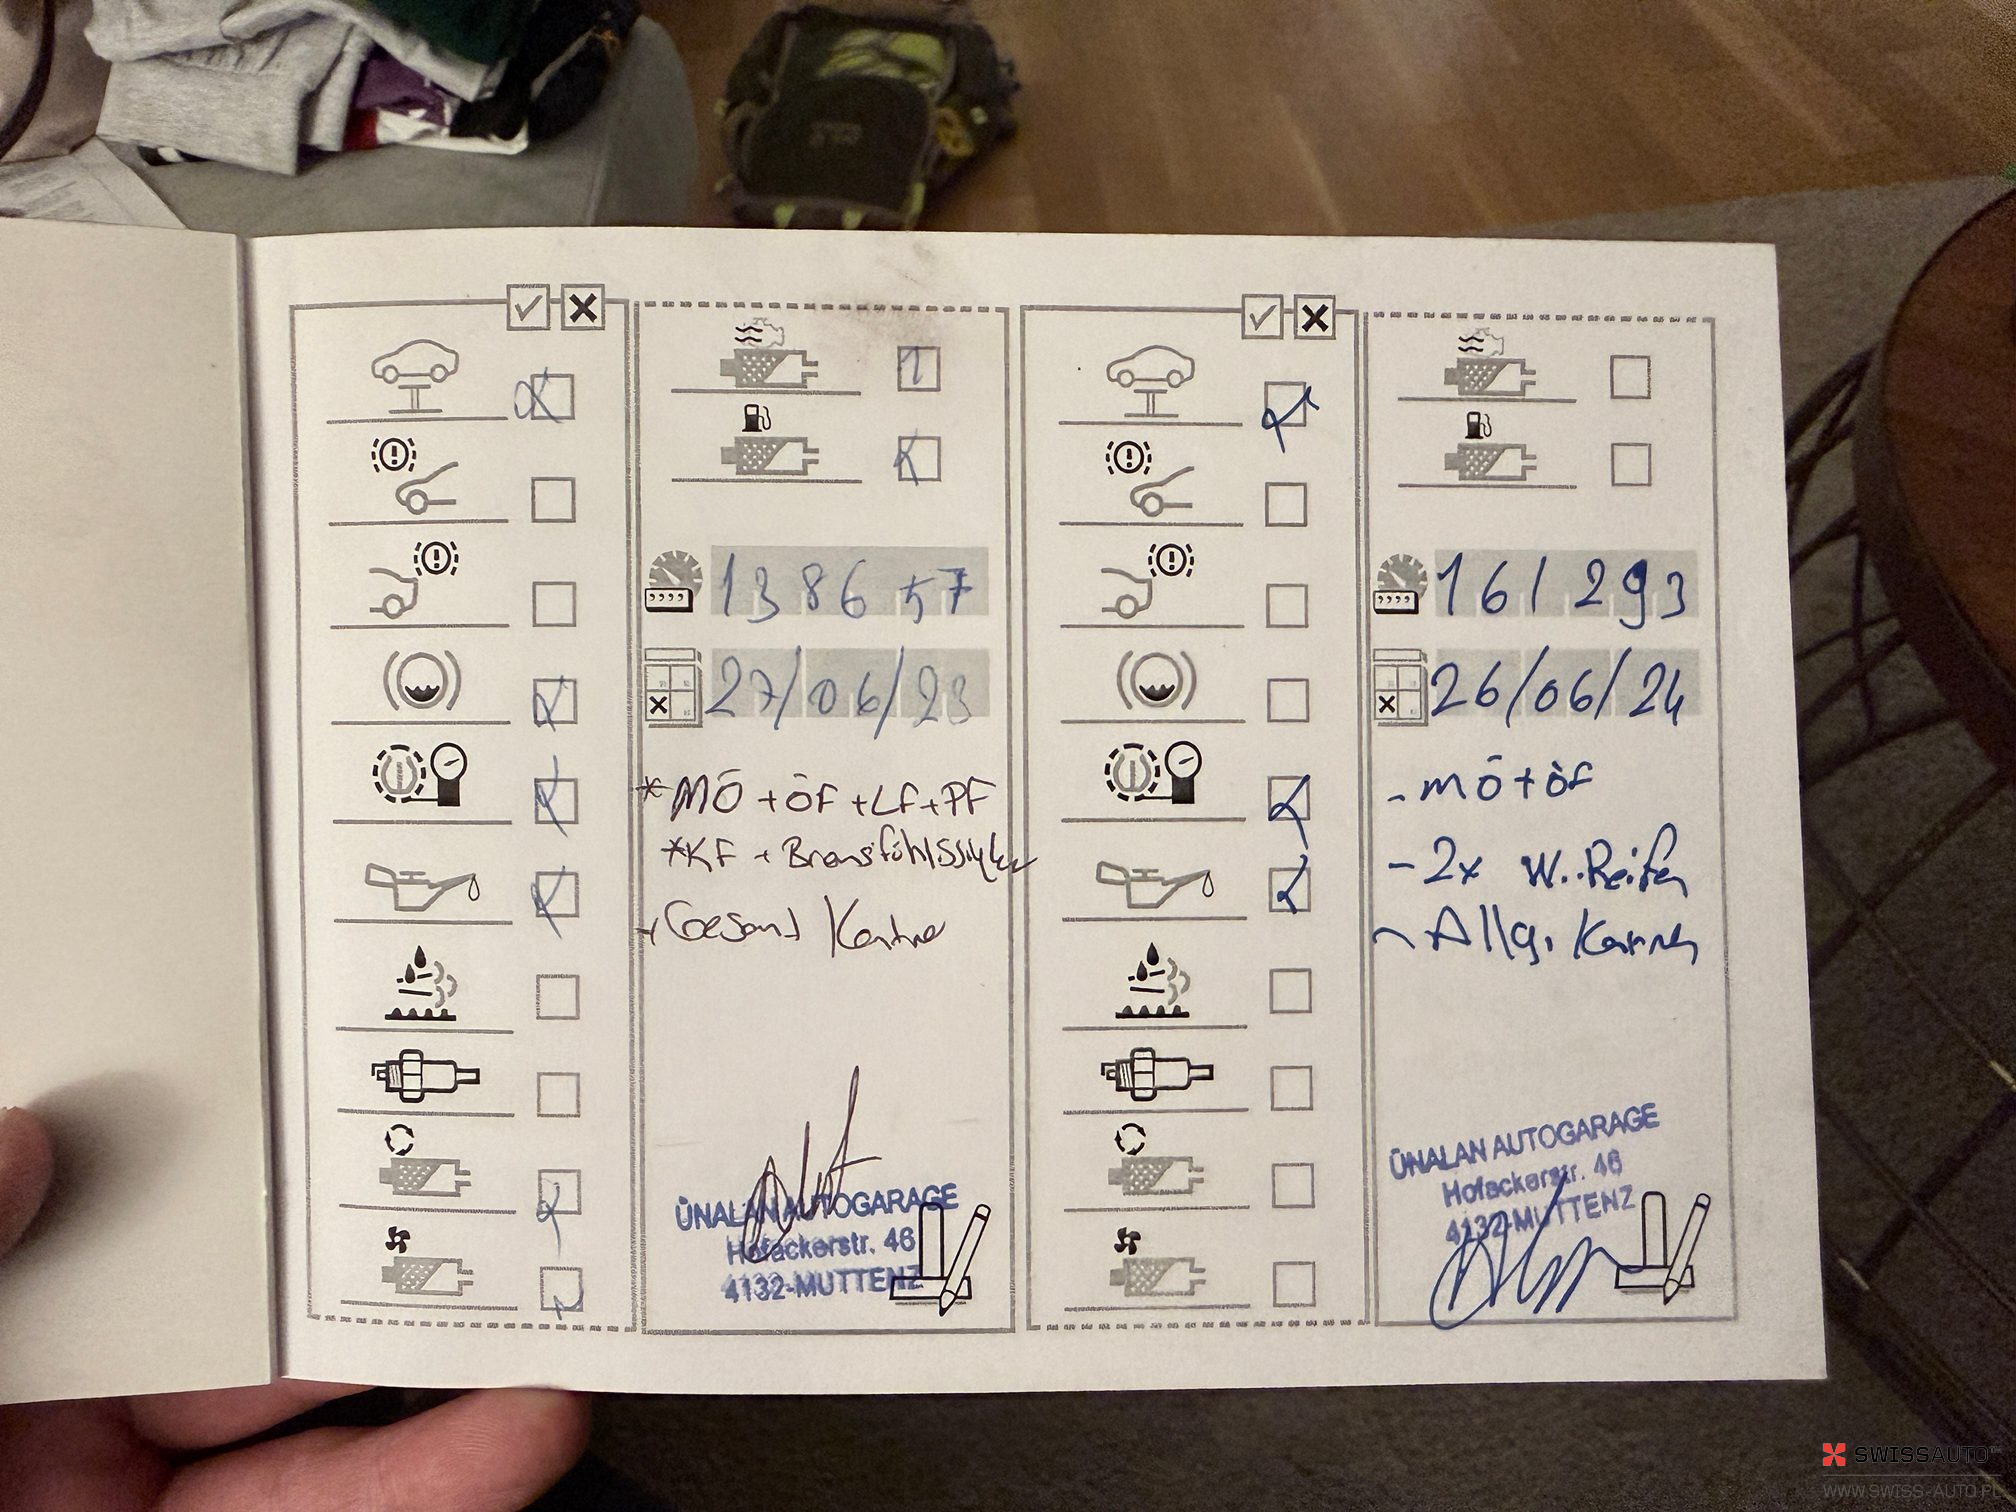 138657
27/06/23
*MÖ + ÖF + LF + PF
*KF +
+ Gesamt
ÜNALAN AUTOGARAGE
Hofackerstr. 46
4132-MUTTENZ
161293
26/06/24
- MÖ + ÖF
- 2x W.Reifen
- Allg.
ÜNALAN AUTOGARAGE
Hofackerstr. 46
4132-MUTTENZ
SWISSAUTO
WWW.SWISS-AUTO.PL